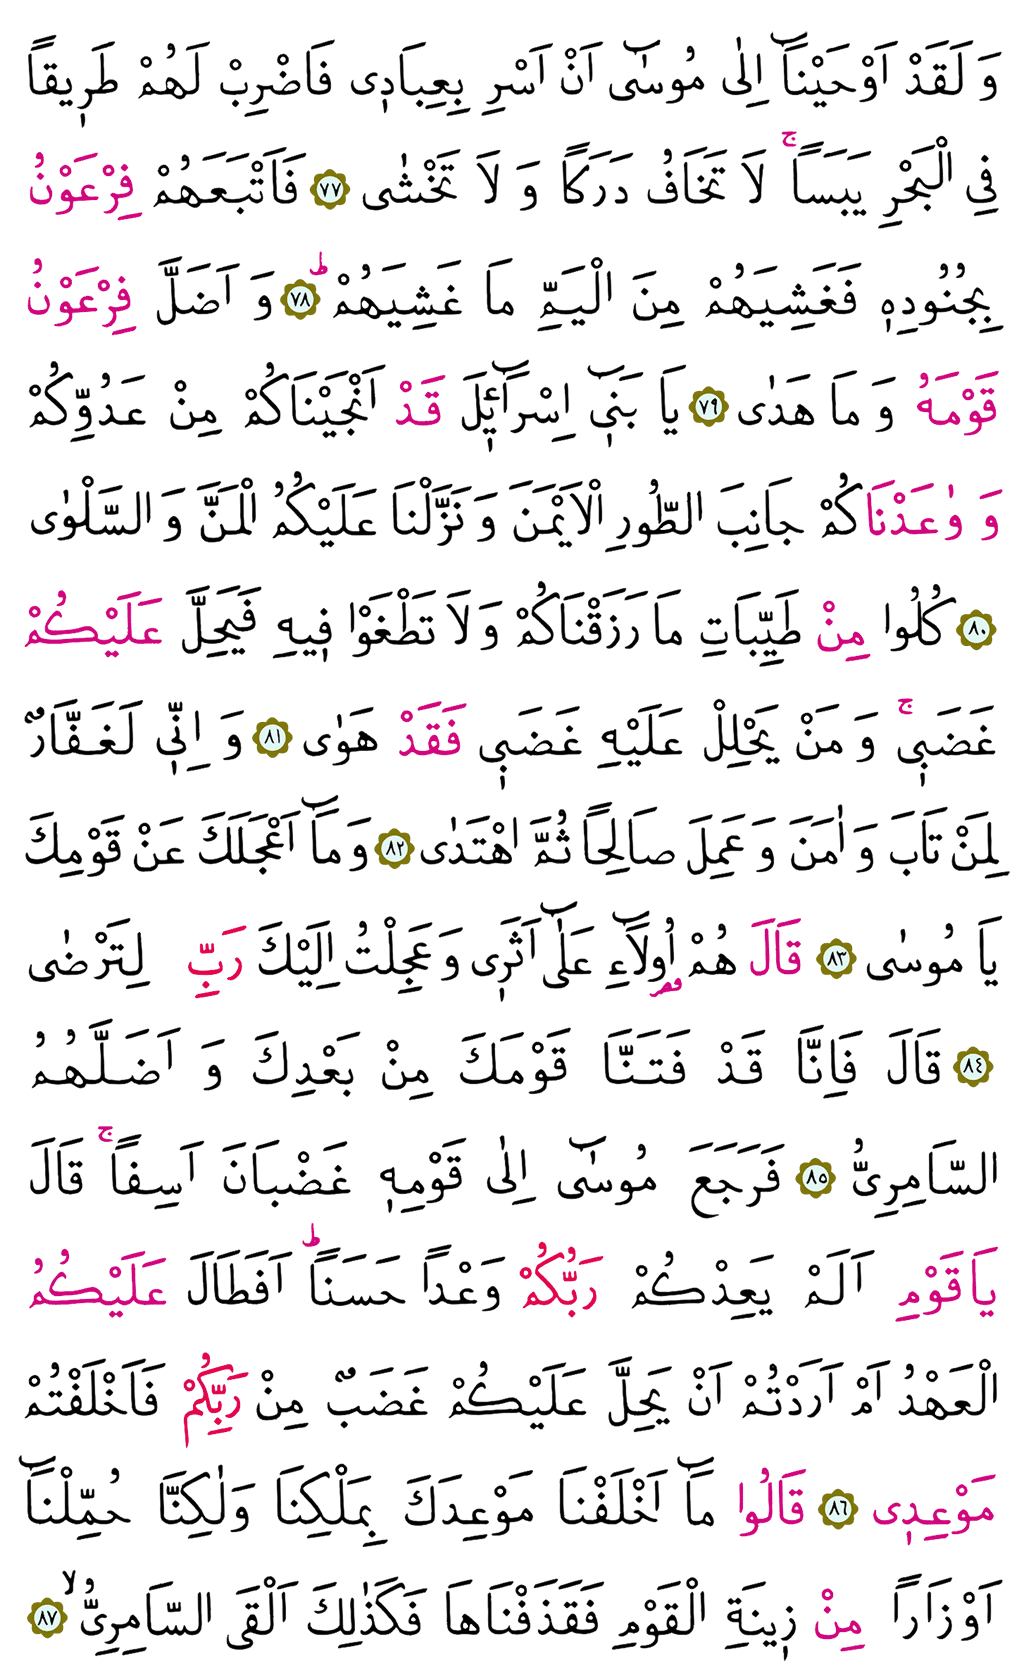 وَ لَقَدْ اَوْحَيْنَٓا اِلٰى مُوسٰٓى اَنْ اَسْرِ بِعِبَادٖى فَاضْرِبْ لَهُمْ طَرٖيقًا
فِى الْبَحْرِ يَبَسًاۚ لَا تَخَافُ دَرَكًا وَ لَا تَخْشٰى ﴿٧٧﴾ فَاَتْبَعَهُمْ فِرْعَوْنُ
بِجُنُودِهٖ فَغَشِيَهُمْ مِنَ الْيَمِّ مَا غَشِيَهُمْؕ ﴿٧٨﴾ وَ اَضَلَّ فِرْعَوْنُ
قَوْمَهُ وَ مَا هَدٰى ﴿٧٩﴾ يَا بَنٖٓى اِسْرَٓائٖلَ قَدْ اَنْجَيْنَاكُمْ مِنْ عَدُوِّكُمْ
وَ وٰعَدْنَاكُمْ جَانِبَ الطُّورِ الْاَيْمَنَ وَ نَزَّلْنَا عَلَيْكُمُ الْمَنَّ وَ السَّلْوٰى
﴿٨٠﴾ كُلُوا مِنْ طَيِّبَاتِ مَا رَزَقْنَاكُمْ وَ لَا تَطْغَوْا فٖيهِ فَيَحِلَّ عَلَيْكُمْ
غَضَبٖىۚ وَ مَنْ يَحْلِلْ عَلَيْهِ غَضَبٖى فَقَدْ هَوٰى ﴿٨١﴾ وَ اِنّٖى لَغَفَّارٌ
لِمَنْ تَابَ وَ اٰمَنَ وَ عَمِلَ صَالِحًا ثُمَّ اهْتَدٰى ﴿٨٢﴾ وَ مَٓا اَعْجَلَكَ عَنْ قَوْمِكَ
يَا مُوسٰى ﴿٨٣﴾ قَالَ هُمْ اُولَٓاءِ عَلٰٓى اَثَرٖى وَ عَجِلْتُ اِلَيْكَ رَبِّ لِتَرْضٰى
﴿٨٤﴾ قَالَ فَاِنَّا قَدْ فَتَنَّا قَوْمَكَ مِنْ بَعْدِكَ وَ اَضَلَّهُمُ
السَّامِرِىُّ ﴿٨٥﴾ فَرَجَعَ مُوسٰٓى اِلٰى قَوْمِهٖ غَضْبَانَ اَسِفًاۚ قَالَ
يَا قَوْمِ اَلَمْ يَعِدْكُمْ رَبُّكُمْ وَعْدًا حَسَنًاؕ اَفَطَالَ عَلَيْكُمُ
الْعَهْدُ اَمْ اَرَدْتُمْ اَنْ يَحِلَّ عَلَيْكُمْ غَضَبٌ مِنْ رَبِّكُمْ فَاَخْلَفْتُمْ
مَوْعِدٖى ﴿٨٦﴾ قَالُوا مَٓا اَخْلَفْنَا مَوْعِدَكَ بِمَلْكِنَا وَلٰكِنَّا حُمِّلْنَٓا
اَوْزَارًا مِنْ زٖينَةِ الْقَوْمِ فَقَذَفْنَاهَا فَكَذٰلِكَ اَلْقَى السَّامِرِىُّۙ ﴿٨٧﴾